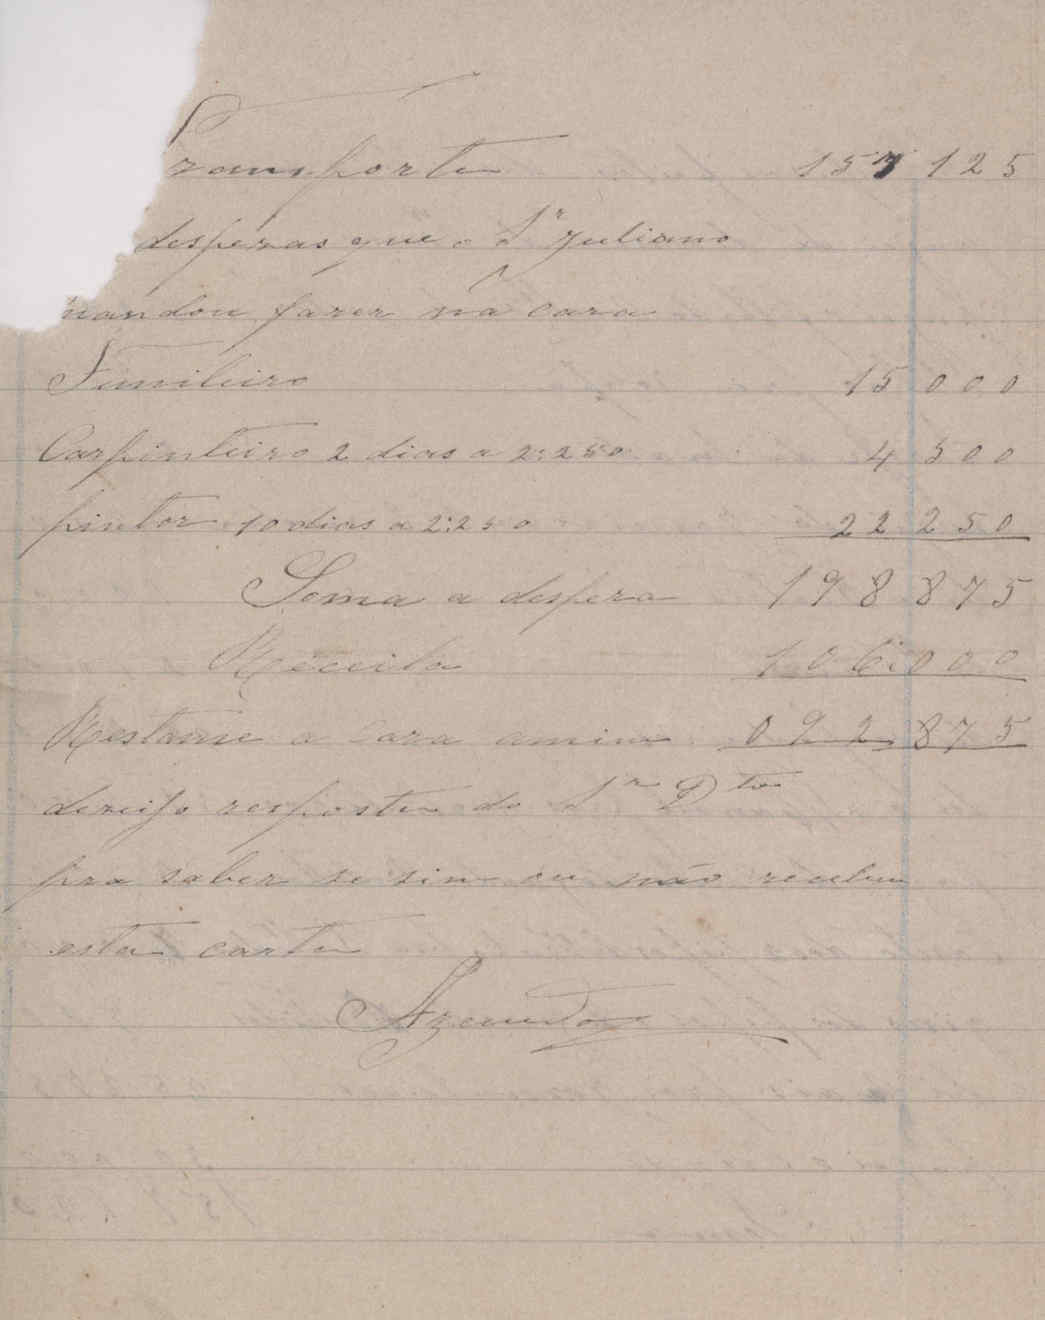 Transporte 157 125
despezas que o Sr Juliano
mandou fazer na caza
Funileiro 15 000
Carpinteiro 2 dias a 2:250 4 500
pintor 10 dias a 2:250 22 250
Soma a despeza 198 875
Receita 106:000
Restame a caza amim 092 875
dezeijo resposta do Sr Dtor
pra saber se sim ou não recebeu
esta carta
Azevedo